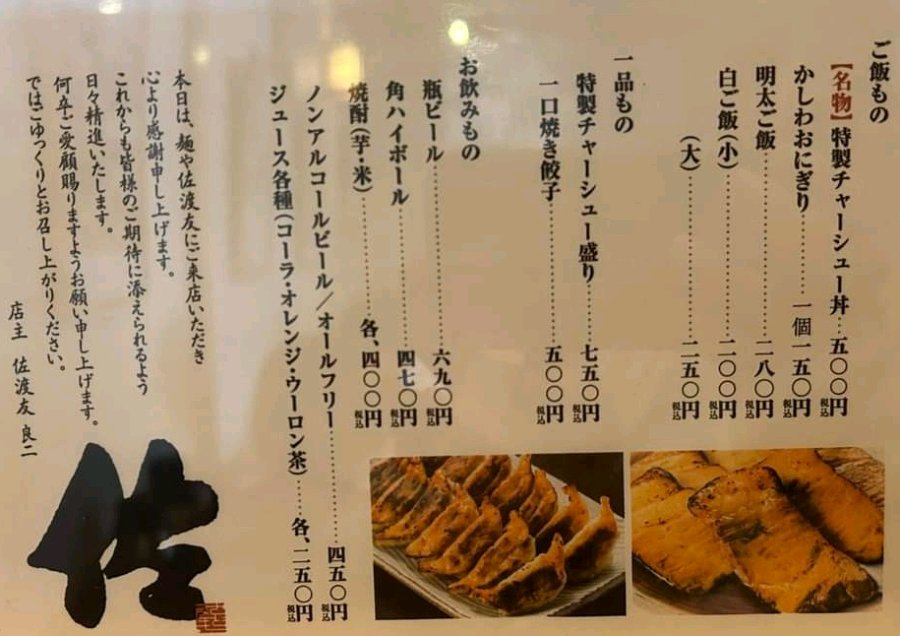 ご飯もの
【名物】特製チャーシュー丼…五〇〇円税込
かしわおにぎり…………一個一五〇円税込
明太ご飯…………………二八〇円税込
白ご飯(小)…………………二〇〇円税込
(大)…………………二五〇円税込
一品もの
特製チャーシュー盛り………七五〇円税込
一口焼き餃子…………………五〇〇円税込
お飲みもの
瓶ビール…………………六九〇円税込
角ハイボール………………四七〇円税込
焼酎(芋・米)………………各、四〇〇円税込
ノンアルコールビール/オールフリー…………四五〇円税込
ジュース各種(コーラ・オレンジ・ウーロン茶)……各、二五〇円税込
本日は、麺や佐渡友にご来店いただき
心より感謝申し上げます。
これからも皆様のご期待に添えられるよう
日々精進いたします。
何卒ご愛顧賜りますようお願い申し上げます。
ではごゆっくりとお召し上がりください。
店主 佐渡友 良二
佐